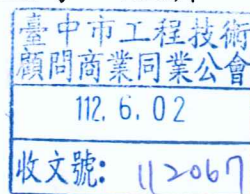 臺中市工程技術
顧問商業同業公會
112. 6. 02
收文號: 112067